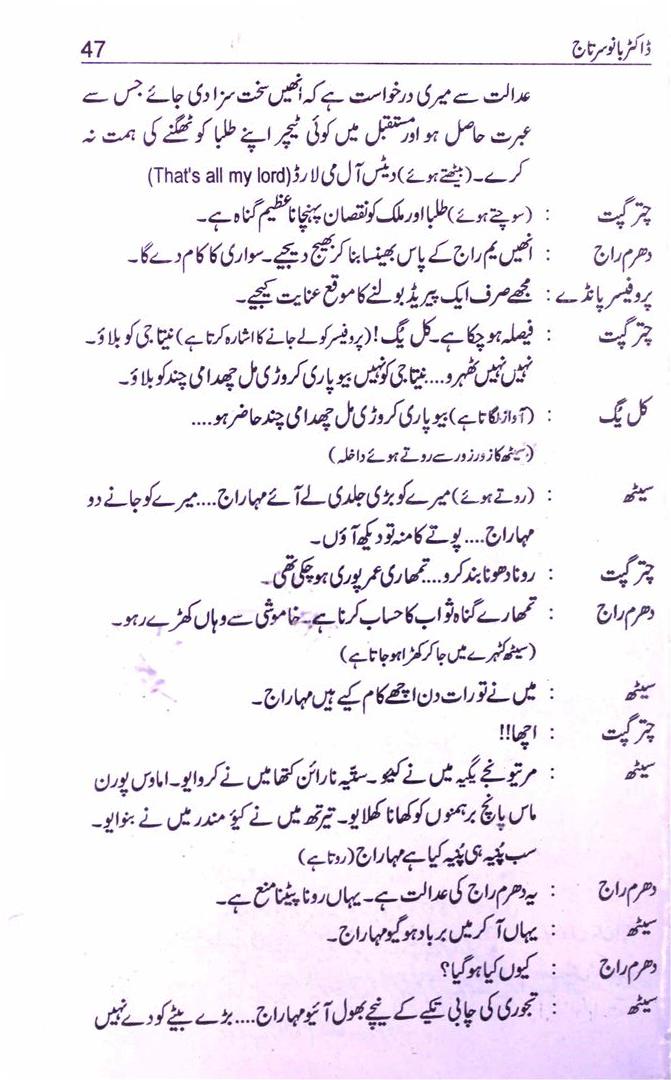 ڈاکٹر بانو سرتاج 47
عدالت سے میری درخواست ہے کہ انھیں سخت سزا دی جائے جس سے
عبرت حاصل ہو اور مستقبل میں کوئی ٹیچر اپنے طلبا کو ٹھگنے کی ہمت نہ
کرے۔ (بیٹھتے ہوئے) دیٹس آل می لارڈ (That's all my lord)
چترگپت : (سوچتے ہوئے) طلبا اور ملک کو نقصان پہنچانا عظیم گناہ ہے۔
دھرم راج : انھیں یم راج کے پاس بھینسا بنا کر بھیج دیجیے۔ سواری کا کام دے گا۔
پروفیسر پانڈے : مجھے صرف ایک پیریڈ بولنے کا موقع عنایت کیجیے۔
چترگپت : فیصلہ ہو چکا ہے۔ کل یگ! (پروفیسر کو لے جانے کا اشارہ کرتا ہے) نیتا جی کو بلاؤ۔
نہیں نہیں ٹھہرو.... نیتا جی کو نہیں بیوپاری کروڑی مل چھدامی چند کو بلاؤ۔
کل یگ : (آواز لگاتا ہے) بیوپاری کروڑی مل چھدامی چند حاضر ہو....
(سیٹھ کا زور زور سے روتے ہوئے داخلہ)
سیٹھ : (روتے ہوئے) میرے کو بڑی جلدی لے آئے مہاراج.... میرے کو جانے دو
مہاراج.... پوتے کا منہ تو دیکھ آؤں۔
چترگپت : رونا دھونا بند کرو.... تمھاری عمر پوری ہو چکی تھی۔
دھرم راج : تمھارے گناہ ثواب کا حساب کرنا ہے۔ خاموشی سے وہاں کھڑے رہو۔
(سیٹھ کٹہرے میں جا کر کھڑا ہو جاتا ہے)
سیٹھ : میں نے تو رات دن اچھے کام کیے ہیں مہاراج۔
چترگپت : اچھا!!
سیٹھ : مرتیونجے یگیہ میں نے کیو۔ ستیہ نارائن کتھا میں نے کروایو۔ اماوس پورن
ماس پانچ برہمنوں کو کھانا کھلایو۔ تیرتھ میں نے کیؤ مندر میں نے بنوایو۔
سب پنیہ ہی پنیہ کیا ہے مہاراج (روتا ہے)
دھرم راج : یہ دھرم راج کی عدالت ہے۔ یہاں رونا پیٹنا منع ہے۔
سیٹھ : یہاں آ کر میں برباد ہو گیو مہاراج۔
دھرم راج : کیوں کیا ہو گیا؟
سیٹھ : تجوری کی چابی تکیے کے نیچے بھول آئیو مہاراج.... بڑے بیٹے کو دے نہیں